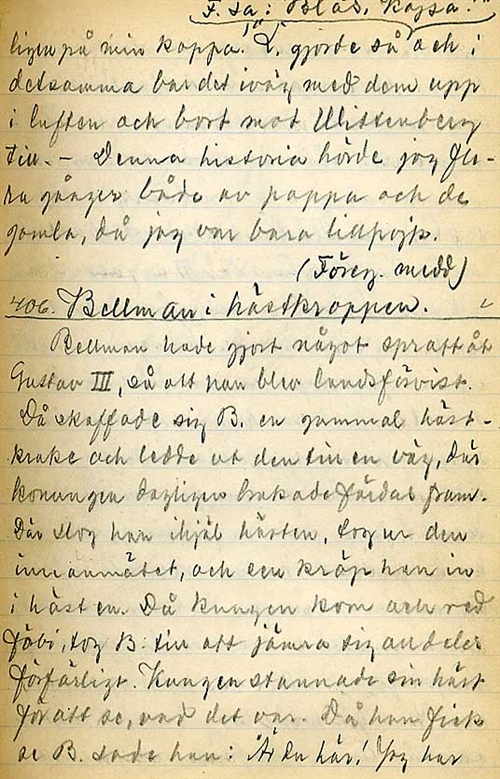 F. sa: Blås, Kajsa!"
ligen på min kappa. L. gjorde så och i
detsamma bar det iväg med dem upp
i luften och bort mot Wittenberg
till. – Denna historia hörde jag fle-
ra gånger både av pappa och de
gamla, då jag var bara lillpojk.
(Föreg. medd)
406. Bellman i hästkroppen.
Bellman hade gjort något spratt åt
Gustav III, så att han blev landsförvist.
Då skaffade sig B. en gammal häst-
krake och ledde ut den till en väg, där
konungen dagligen brukade färdas fram.
Där slog han ihjäl hästen, tog ur den
innanmätet, och sen kröp han in
i hästen. Då kungen kom och red
förbi, tog B. till att jämra sig and eler
förfärligt. Kungen stannade sin häst
för att se, vad det var. Då han fick
se B. sade han: "Är du här! Jag har